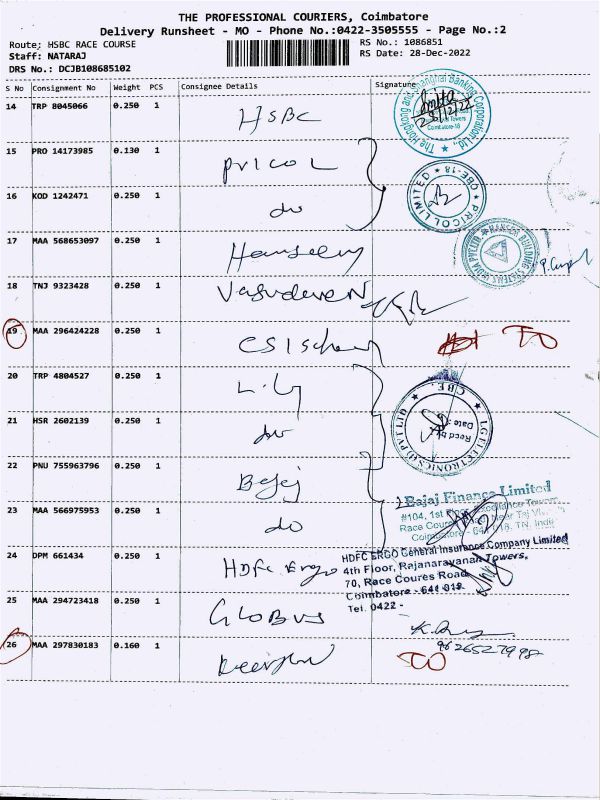 THE PROFESSIONAL COURIERS, Coimbatore
Delivery Runsheet - MO - Phone No.:0422-3505555 - Page No.:2
Route; HSBC RACE COURSE
RS No.: 1086851
Staff: NATARAJ
RS Date: 28-Dec-2022
DRS No.: DCJB108685102
S No Consignment No Weight PCS Consignee Details Signature
14 TRP 8045066 0.250 1 HSBC
The Hongkong and Shanghai Banking Corporation Ltd.
28/12/22
Towers
Coimbatore-18
15 PRO 14173985 0.130 1 PRICOL
16 KOD 1242471 0.250 1 do
PRICOL LIMITED CBE-18
17 MAA 568653097 0.250 1
HANSEN BUILDING SYSTEMS INDIA PVT LTD
18 TNJ 9323428 0.250 1 Vasudevan
19 MAA 296424228 0.250 1 CSI School TO
20 TRP 4804527 0.250 1 L.G
21 HSR 2602139 0.250 1 do
LG ELECTRONICS (I) PVT LTD CBE.
Recd by
Date :
22 PNU 755963796 0.250 1 Bajaj
23 MAA 566975953 0.250 1 do
Bajaj Finance Limited
#104, 1st Floor, Towers
Race Course Near Taj
Coimbatore - 641 018. TN. India
24 DPM 661434 0.250 1 HDFC Ergo
HDFC ERGO General Insurance Company Limited
4th Floor, Rajanarayanan Towers,
70, Race Coures Road
Coimbatore - 641 018
Tel. 0422 -
25 MAA 294723418 0.250 1 GLOBUS
9626527998
26 MAA 297830183 0.160 1 TO